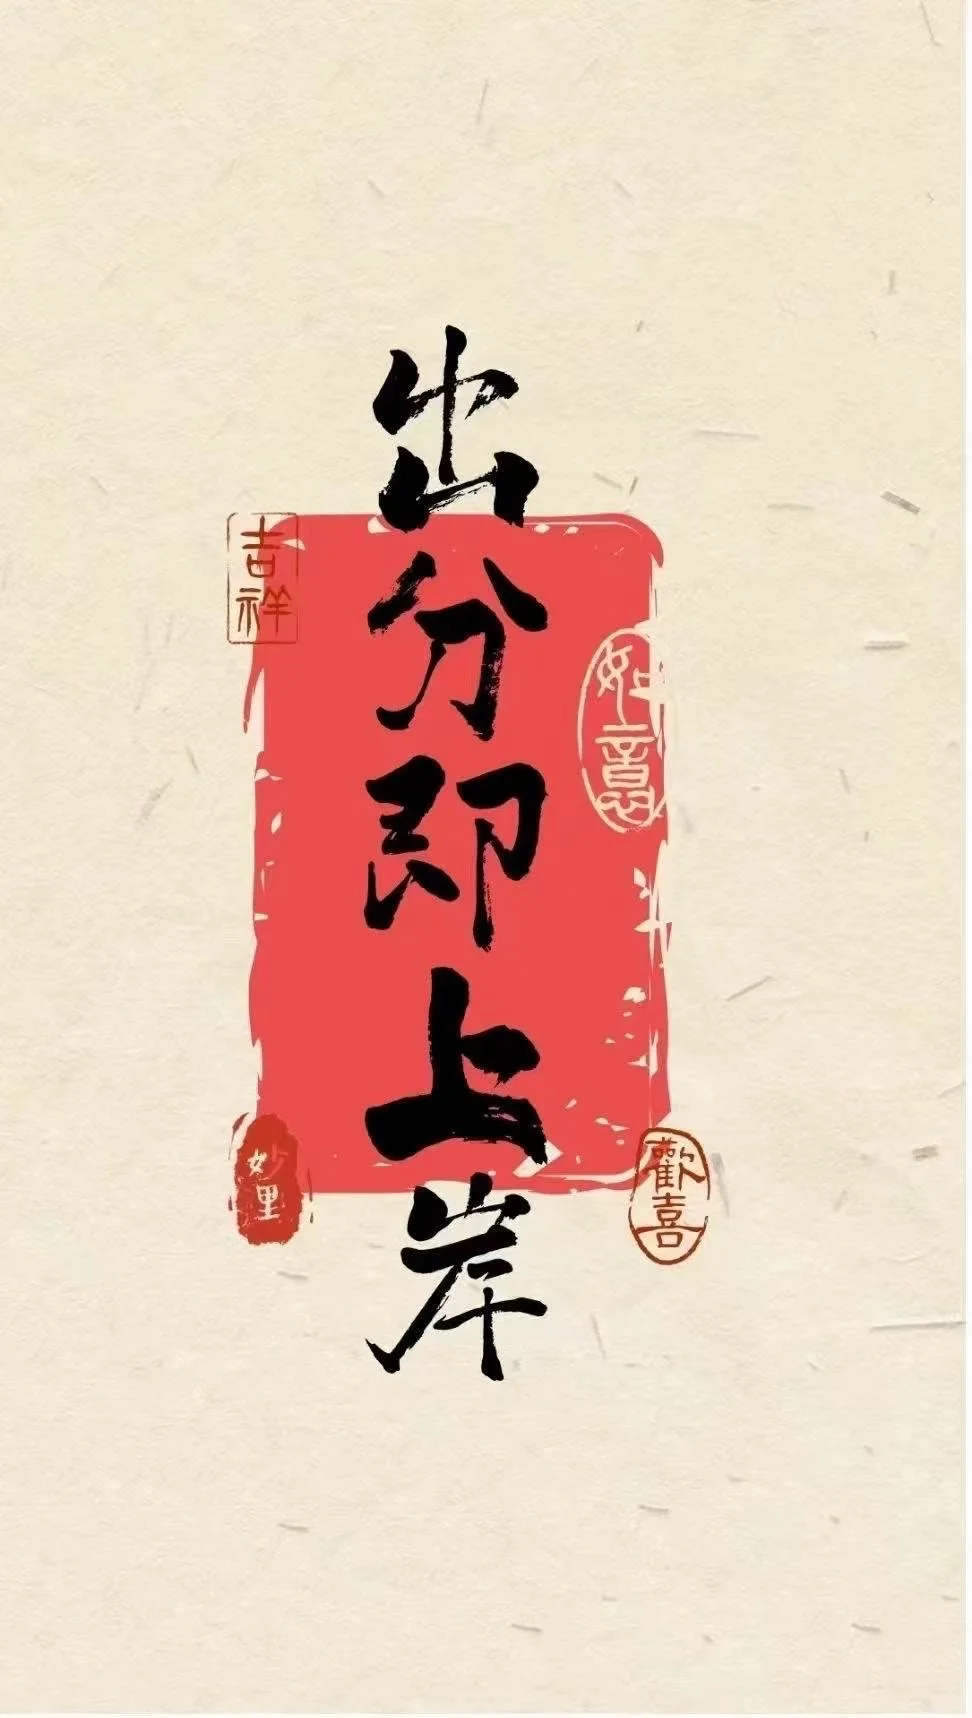 出分即上岸
吉祥
如意
妙里
歡喜